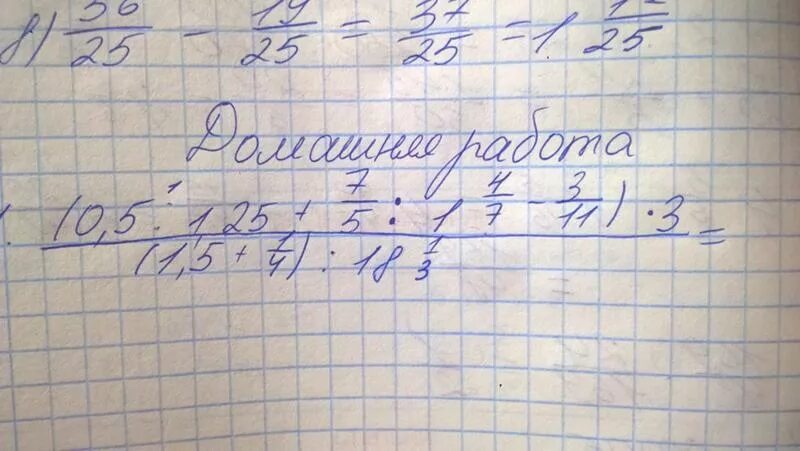 8) 56/25 - 19/25 = 37/25 = 1 12/25
Домашняя работа
1. (0,5 : 1,25 + 7/5 : 1 4/7 - 3/11) · 3 =
(1,5 + 1/4) : 18 1/3